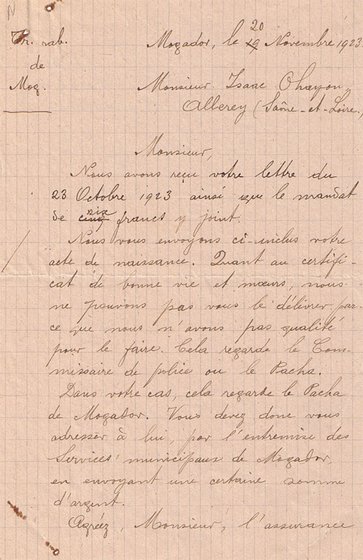 Tr. rab.
de
Mog.
Mogador, le 19 20 Novembre 1923
Monsieur Isaac Ohayon
Allerey (Saône-et-Loire)
Monsieur,
Nous avons reçu votre lettre du
23 Octobre 1923 ainsi que le mandat
de cinq six francs y joint.
Nous vous envoyons ci-inclus votre
acte de naissance. Quant au certifi-
cat de bonne vie et mœurs, nous
ne pouvons pas vous le délivrer par-
ce que nous n'avons pas qualité
pour le faire. Cela regarde le Com-
missaire de police ou le Pacha.
Dans votre cas, cela regarde le Pacha
de Mogador. Vous devez donc vous
adresser à lui, par l'entremise des
Services municipaux de Mogador,
en envoyant une certaine somme
d'argent.
Agréez, Monsieur, l'assurance